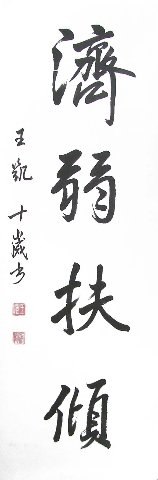 濟弱扶傾
王凱 十歲书